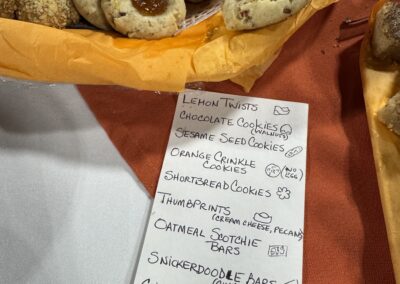 LEMON TWISTS
CHOCOLATE COOKIES
(WALNUTS)
SESAME SEED COOKIES
ORANGE CRINKLE
COOKIES
NO
EGG
SHORTBREAD COOKIES
THUMBPRINTS
(CREAM CHEESE, PECANS)
OATMEAL SCOTCHIE
BARS
SNICKERDOODLE BARS